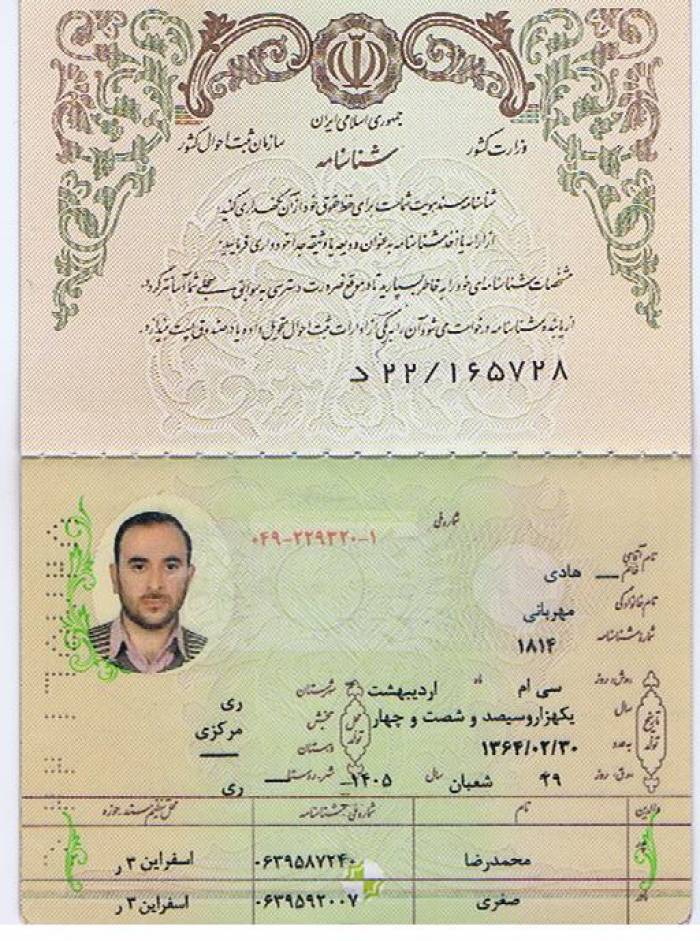 جمهوری اسلامی ایران
وزارت کشور
سازمان ثبت احوال کشور
شناسنامه
شناسنامه سند هویت شماست برای حفظ حقوق خود از آن نگهداری کنید.
از ارائه یا اخذ شناسنامه به عنوان ودیعه یا وثیقه جدا خودداری فرمایید.
مشخصات شناسنامه‌ای خود را به خاطر بسپارید تا در موقع ضرورت دسترسی به سوابق سجلی شما آسانتر گردد.
از یابنده شناسنامه درخواست می‌شود آن را به یکی از ادارات ثبت احوال تحویل داده یا در صندوق پست بیندازد.
د ۲۲/۱۶۵۷۲۸
شماره ملی
۰۴۹-۲۲۹۳۲۰-۱
نام آقای خانم هادی
نام خانوادگی مهربانی
شماره شناسنامه ۱۸۱۴
تاریخ تولد
روز سی ام ماه اردیبهشت
سال یکهزاروسیصد و شصت و چهار
به عدد ۱۳۶۴/۰۲/۳۰
روز ۲۹ شعبان سال ۱۴۰۵
محل تولد
شهرستان ری
بخش مرکزی
دهستان
شهر-روستا ری
والدین نام شماره ملی-شناسنامه محل تنظیم سند-حوزه
پدر محمدرضا ۰۶۳۹۵۸۷۲۴۰ اسفراین ۳ ر
مادر صغری ۰۶۳۹۵۹۲۰۰۷ اسفراین ۳ ر